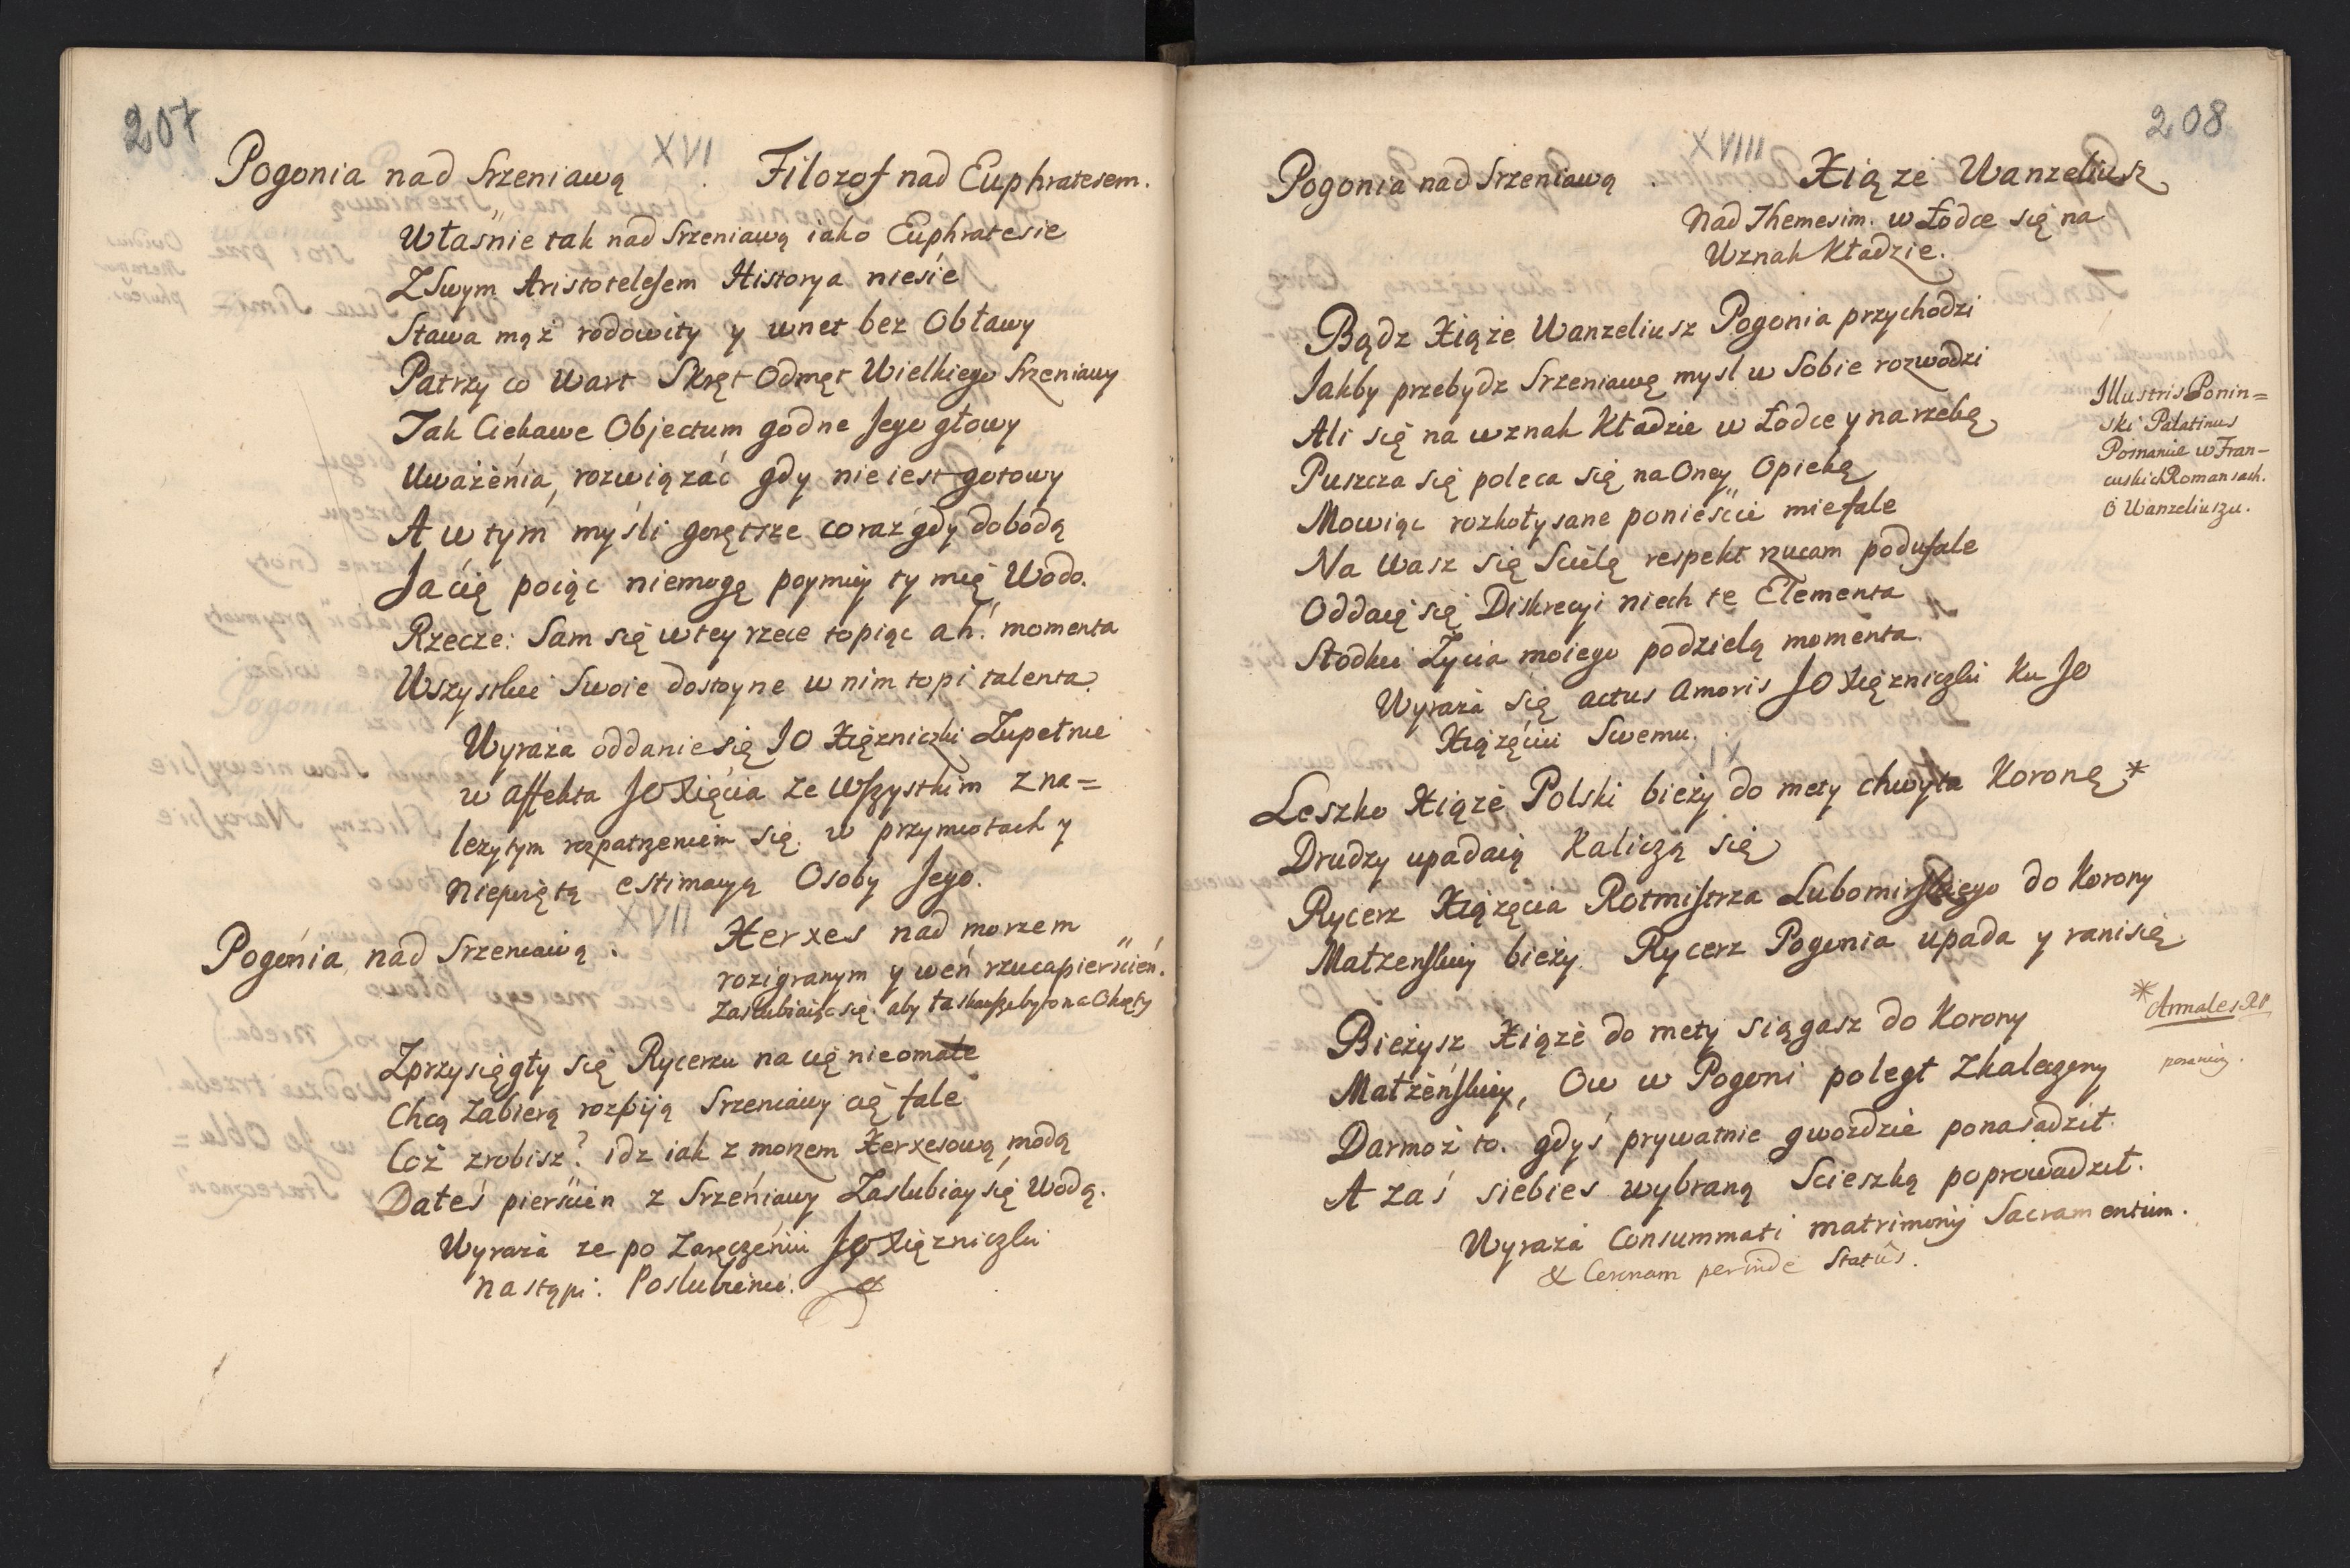 207
XVI
Pogonia nad Srzeniawą . Filozof nad Euphratesem.
Własnie tak nad Srzeniawą iako Euphratesie
Z Swym Aristotelesem Historya niesie
Stawa mąż rodowity y wnet bez Obławy
Patrzy co wart Skręt Odmęt Wielkiego Srzeniawy
Jak Ciekawe Objectum godne Jego głowy
Uważenia, rozwiązać gdy nie iest gotowy
A w tym myśli gorętsze coraz gdy dobodą
Ja cię poiąc niemogę poymiy ty mię Wodo.
Rzecze: Sam się w tey rzece topiąc ah! momenta
Wszystkie Swoie dostoyne w nim topi talenta.
Wyraża oddanie się JO Xiężniczki Zupełnie
w affekta JO Xięcia ze Wszystkim z na=
leżytym rozpatrzeniem się w przymiotach y
Niepiętą estimacyą Osoby Jego.
XVII
Pogonia nad Srzeniawą . Xerxes nad morzem
rozigranym y weń rzuca pierscień.
Zaslubiaiąc się aby łaskawsze było na Okręty
Zprzysięgły się Rycerzu na cię nieomale
Chcą zabierą rozbiją Srzeniawy cię fale
Coż zrobisz? idz iak z morzem Xerxesową modą
Dałeś pierscien z Srzeniawy Zaslubiay się Wodą.
Wyraża ze po Zaręczeniu JO Xiężniczki
nastąpi Poslubienie.
208
XVIII
Pogonia nad Srzeniawą . Xiąże Wanzeliusz
Nad Themesim. w Łodce się na
Wznak Kładzie.
Bądz Xiąże Wanzeliusz Pogonia przychodzi
Jakby przebydz Srzeniawę mysl w Sobie rozwodzi
Ali się na wznak Kładzie w Łodce y na rzekę
Puszcza się poleca się na Oney Opiekę
Mowiąc rozkołysane poniescie mię fale
Na Wasz się Scielę respekt rzucam podufale
Oddaię się Diskrecyi niech te Elementa
Słodkie Zycia moiego podzielą momenta.
Illustris Ponin=
ski Palatinus
Posnaniæ w Fran=
cuskich Romansach.
O Wanzeliuszu.
Wyraża się actus Amoris JO Xiężniczki Ku JO
Xiążęciu Swemu.
XIX
Leszko Xiąże Polski bieży do mety chwyta Koronę *
Drudzy upadaią Kaliczą się
Rycerz Xiążęcia Rotmistrza Lubomirskiego do Korony
Małzenskiy bieży Rycerz Pogonia upada y rani się.
* Annales Rl
Bieżysz Xiąże do mety siągasz do Korony
Małżeńskiey, Ow w Pogoni poległ Zkaleczony
Darmoż to. gdyś prywatnie gwozdzie ponasadził.
A zaś siebies wybraną Scieszką poprowadził.
Wyraża Consummati matrimonij Sacramentum.
& Coronam perinde Statûs.